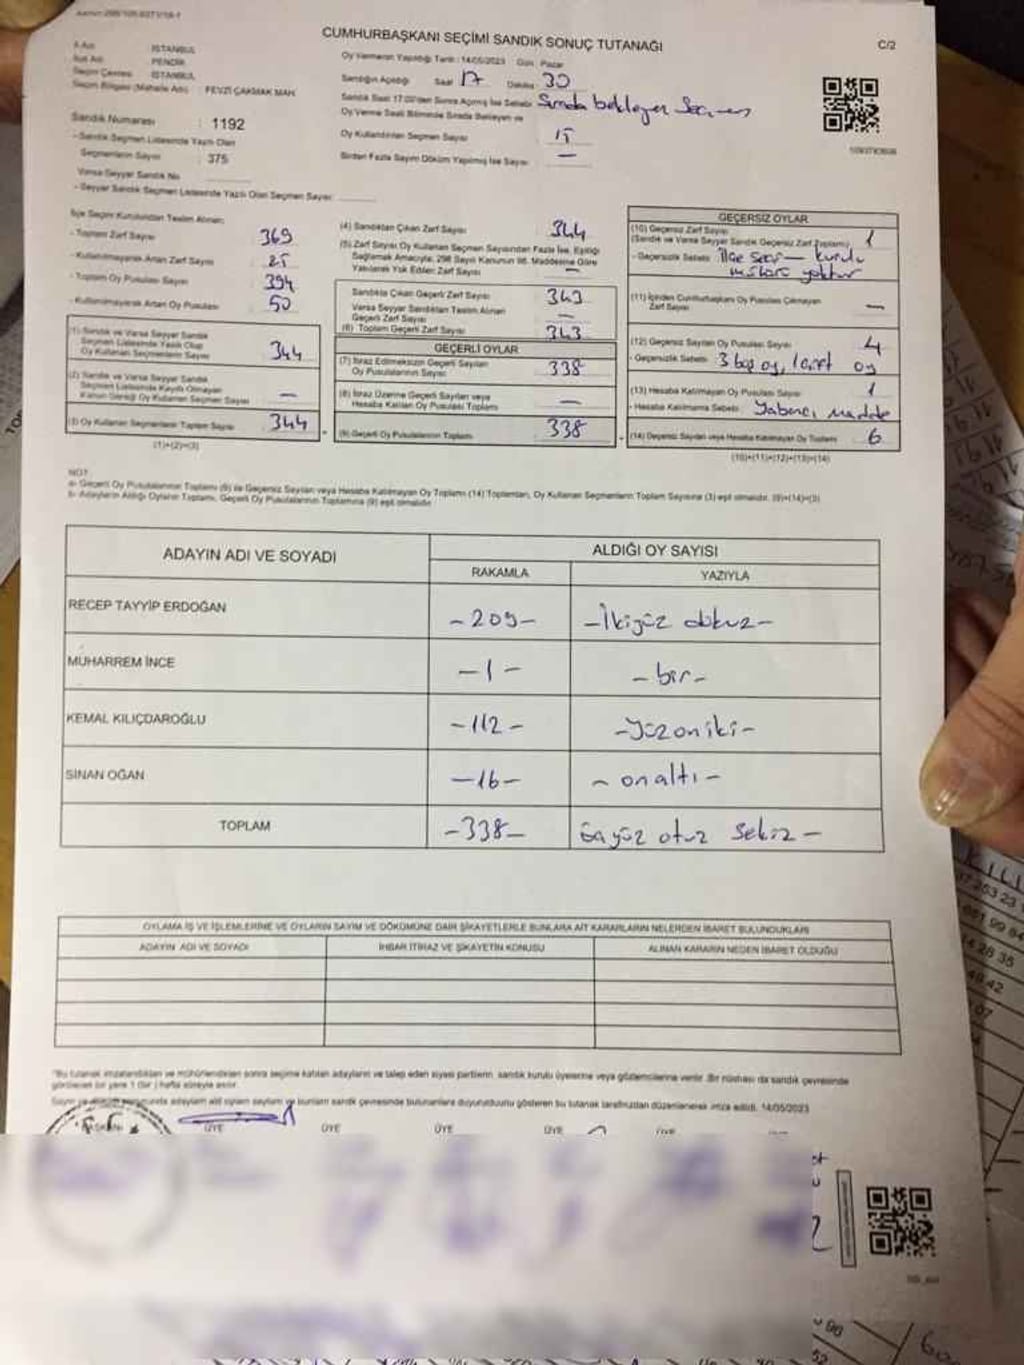 CUMHURBAŞKANI SEÇİMİ SANDIK SONUÇ TUTANAĞI
C/2
İli Adı İSTANBUL
İlçe Adı PENDİK
Seçim Çevresi İSTANBUL
Seçim Bölgesi (Mahalle Adı) : FEVZİ ÇAKMAK MAH.
Sandık Numarası : 1192
- Sandık Seçmen Listesinde Yazılı Olan
Seçmenlerin Sayısı : 375
Varsa Seyyar Sandık No
- Seyyar Sandık Seçmen Listesinde Yazılı Olan Seçmen Sayısı:
Oy Vermenin Yapıldığı Tarih : 14/05/2023 Gün : Pazar
Sandığın Açıldığı Saat 17 Dakika 30
Sandık Saat 17.00'den Sonra Açılmış İse Sebebi: Sırada bekleyen Seçmen
Oy Verme Saati Bitiminde Sırada Bekleyen ve
Oy Kullandırılan Seçmen Sayısı 15
Birden Fazla Sayım Döküm Yapılmış İse Sayısı —
İlçe Seçim Kurulundan Teslim Alınan:
- Toplam Zarf Sayısı 369
- Kullanılmayarak Artan Zarf Sayısı 25
- Toplam Oy Pusulası Sayısı 394
- Kullanılmayarak Artan Oy Pusulası 50
(1) Sandık ve Varsa Seyyar Sandık
Seçmen Listesinde Yazılı Olup
Oy Kullanan Seçmenlerin Sayısı 344
(2) Sandık ve Varsa Seyyar Sandık
Seçmen Listesinde Kayıtlı Olmayan
Kanun Gereği Oy Kullanan Seçmen Sayısı —
(3) Oy Kullanan Seçmenlerin Toplam Sayısı 344
(1)+(2)=(3)
(4) Sandıktan Çıkan Zarf Sayısı 344
(5) Zarf Sayısı Oy Kullanan Seçmen Sayısından Fazla İse, Eşitliği
Sağlamak Amacıyla, 298 Sayılı Kanunun 98. Maddesine Göre
Yakılarak Yok Edilen Zarf Sayısı —
Sandıkta Çıkan Geçerli Zarf Sayısı 343
Varsa Seyyar Sandıktan Teslim Alınan
Geçerli Zarf Sayısı —
(6) Toplam Geçerli Zarf Sayısı 343
GEÇERLİ OYLAR
(7) İtiraz Edilmeksizin Geçerli Sayılan
Oy Pusulalarının Sayısı 338
(8) İtiraz Üzerine Geçerli Sayılan veya
Hesaba Katılan Oy Pusulası Toplamı —
(9) Geçerli Oy Pusulalarının Toplamı 338
GEÇERSİZ OYLAR
(10) Geçersiz Zarf Sayısı
(Sandık ve Varsa Seyyar Sandık Geçersiz Zarf Toplamı) 1
- Geçersizlik Sebebi: İlçe Seç— kurulu
mührü yoktur
(11) İçinden Cumhurbaşkanı Oy Pusulası Çıkmayan
Zarf Sayısı —
(12) Geçersiz Sayılan Oy Pusulası Sayısı 4
- Geçersizlik Sebebi 3 boş oy, 1 çift oy
(13) Hesaba Katılmayan Oy Pusulası Sayısı 1
- Hesaba Katılmama Sebebi Yabancı madde
(14) Geçersiz Sayılan veya Hesaba Katılmayan Oy Toplamı 6
(10)+(11)+(12)+(13)=(14)
NOT:
a- Geçerli Oy Pusulalarının Toplamı (9) ile Geçersiz Sayılan veya Hesaba Katılmayan Oy Toplamı (14) Toplamları, Oy Kullanan Seçmenlerin Toplam Sayısına (3) eşit olmalıdır. (9)+(14)=(3)
b- Adayların Aldığı Oyların Toplamı, Geçerli Oy Pusulalarının Toplamına (9) eşit olmalıdır.
ADAYIN ADI VE SOYADI
ALDIĞI OY SAYISI
RAKAMLA YAZIYLA
RECEP TAYYİP ERDOĞAN -209- -İkiyüz dokuz-
MUHARREM İNCE -1- -bir-
KEMAL KILIÇDAROĞLU -112- -Yüzoniki-
SİNAN OĞAN -16- -onaltı-
TOPLAM -338- üçyüz otuz sekiz-
OYLAMA İŞ VE İŞLEMLERİNE VE OYLARIN SAYIM VE DÖKÜMÜNE DAİR ŞİKAYETLERLE BUNLARA AİT KARARLARIN NELERDEN İBARET BULUNDUKLARI
ADAYIN ADI VE SOYADI İHBAR İTİRAZ VE ŞİKAYETİN KONUSU ALINAN KARARIN NEDEN İBARET OLDUĞU
*Bu tutanak imzalandıktan ve mühürlendikten sonra seçime katılan adayların ve talep eden siyasi partilerin, sandık kurulu üyelerine veya gözlemcilerine verilir. Bir nüshası da sandık çevresinde
görülebilen bir yere 1 (bir) hafta süreyle asılır.
14/05/2023
BAŞKAN ÜYE ÜYE ÜYE ÜYE ÜYE